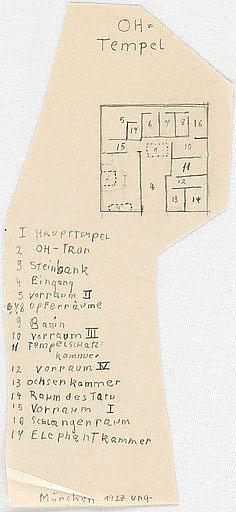 OH=
Tempel
5 6 7 8 16
17
15 9 10
11
2 I 4 12
13 14
3
I HAUPTTEMPEL
2 OH-TRON
3 Steinbank
4 Eingang
5 Vorraum II
6 7 8 Opferräume
9 Basin
10 Vorraum III
11 Tempelschatz-
kammer
12 Vorraum IV
13 ochsenkammer
14 Raum des Tatu
15 Vorraum I
16 Schlangenraum
17 Elephantkammer
München 1922 Ung-